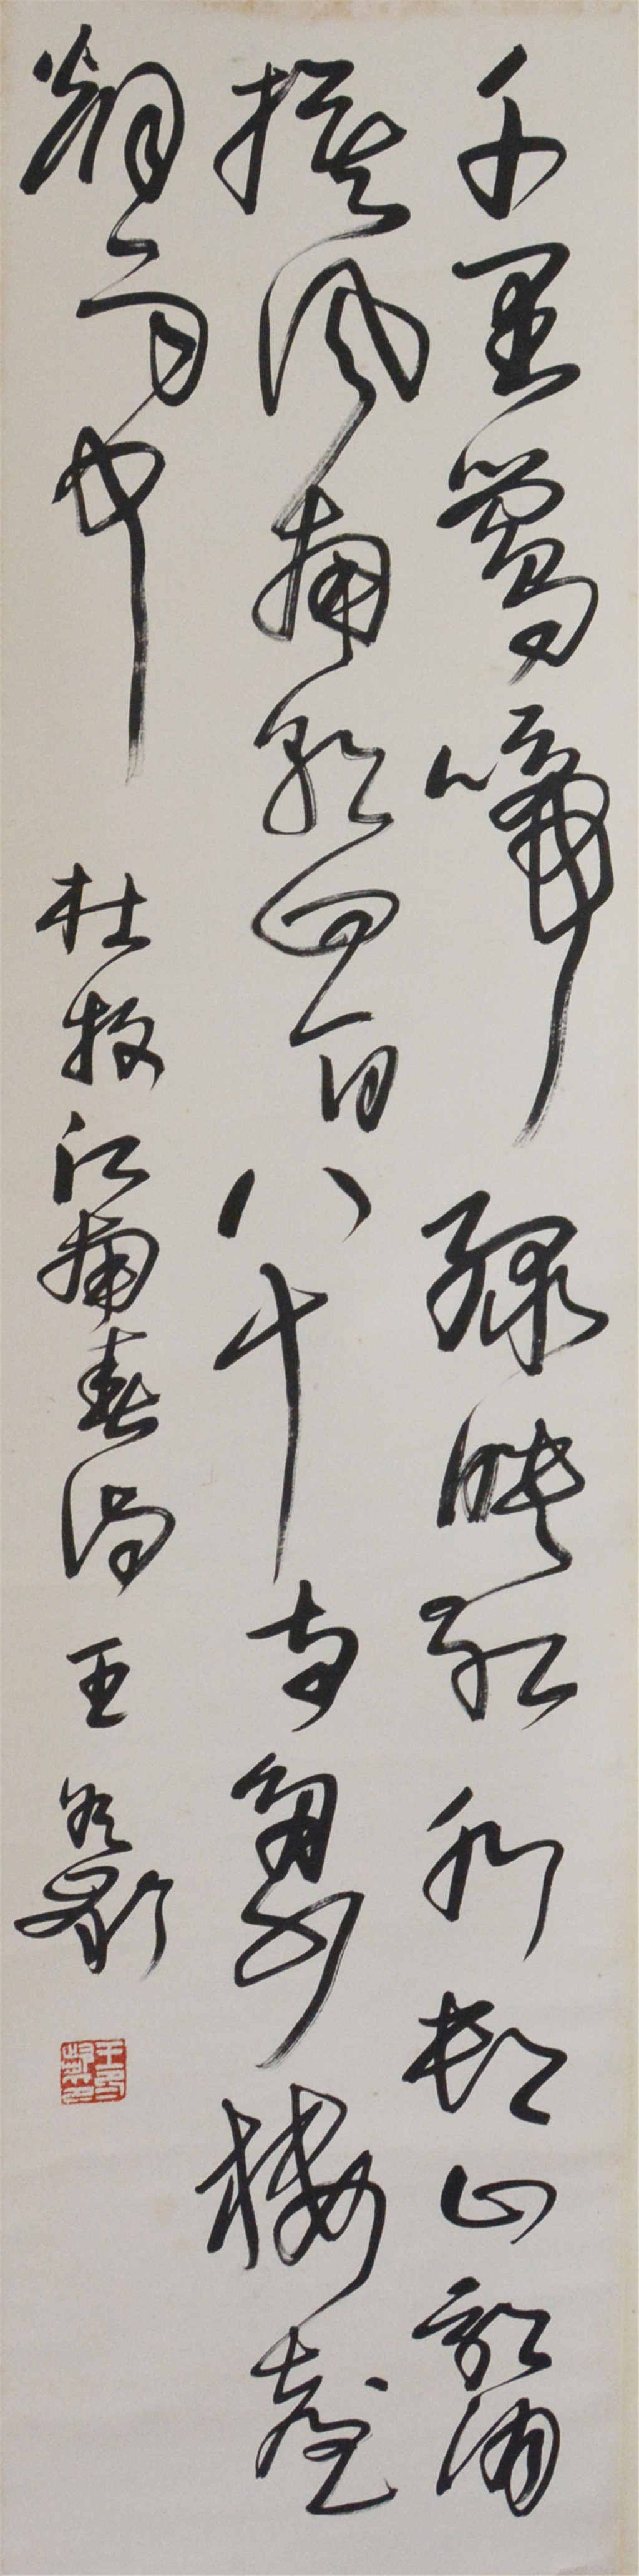 千里鶯啼綠映紅水邨山郭酒
旗風南朝四百八十寺多少樓臺
烟雨中 杜牧江南春詩 王冬齡